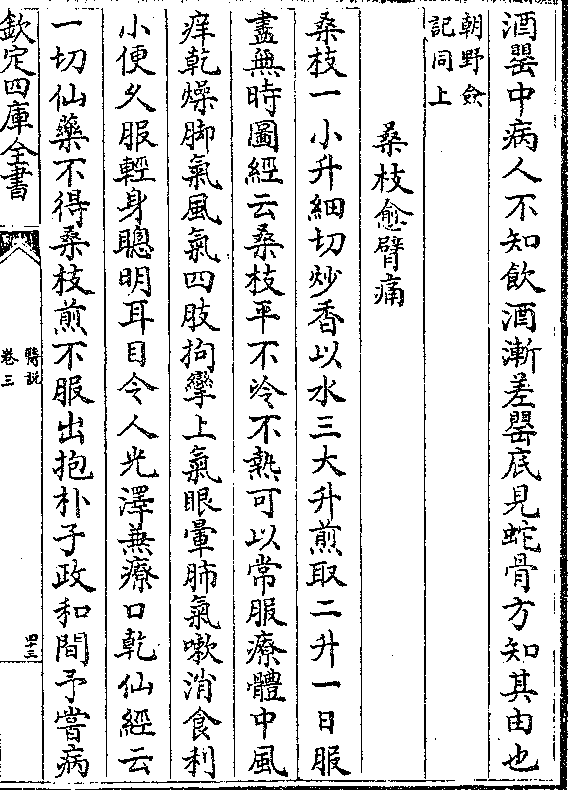 酒罌中病人不知飲酒漸差罌底見蛇骨方知其由也
朝野僉
記同上
桑枝愈臂痛
桑枝一小升細切炒香以水三大升煎取二升一日服
盡無時圖經云桑枝平不冷不熱可以常服療體中風
痒乾燥脚氣風氣四肢拘攣上氣眼暈肺氣嗽消食利
小便久服輕身聰明耳目令人光澤兼療口乾仙經云
一切仙藥不得桑枝煎不服出抱朴子政和間予嘗病
欽定四庫全書
醫説
卷三
四三